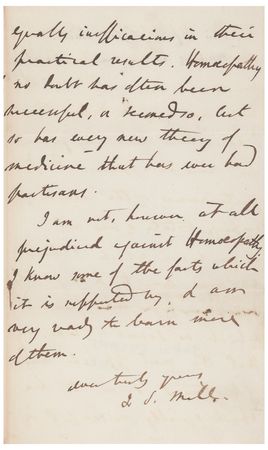 equally inefficacious in their
practical results. Homœopathy
no doubt has often been
successful, or seemed so, but
so has every new theory of
medicine that has ever had
partisans.
I am not, however at all
prejudiced against Homœopathy.
I know some of the facts which
it is supported by, & am
very ready to learn more
of them.
very truly yours
J. S. Mill.